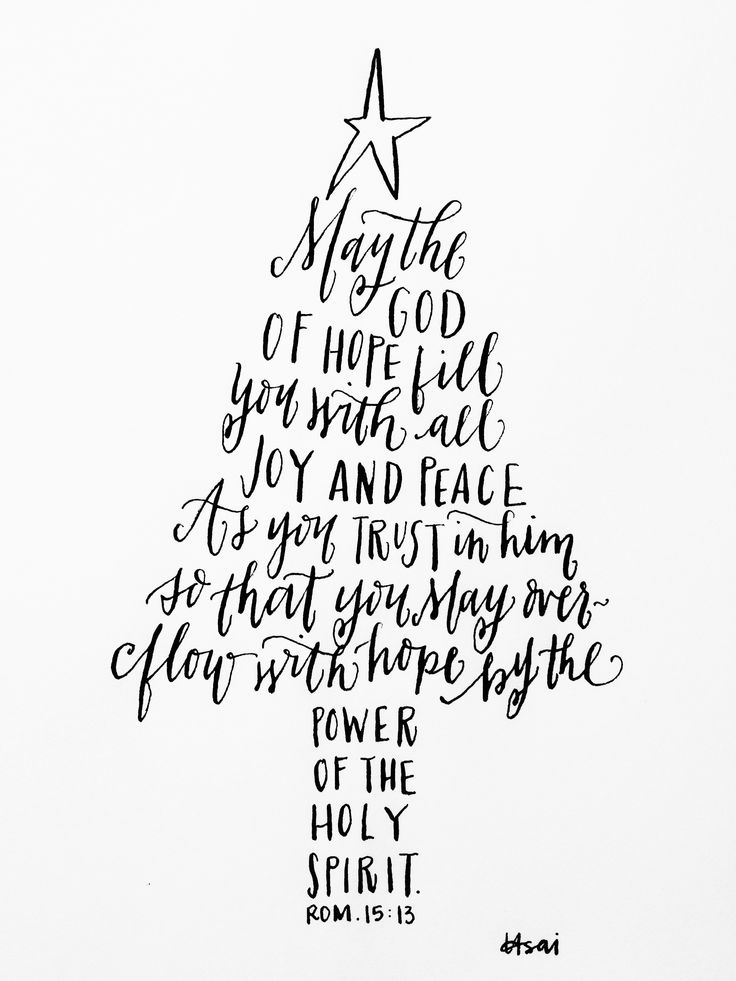 May the
GOD
OF HOPE fill
you with all
JOY AND PEACE
As you TRUST in him
so that you May over~
flow with hope by the
POWER
OF THE
HOLY
SPIRIT.
ROM. 15:13